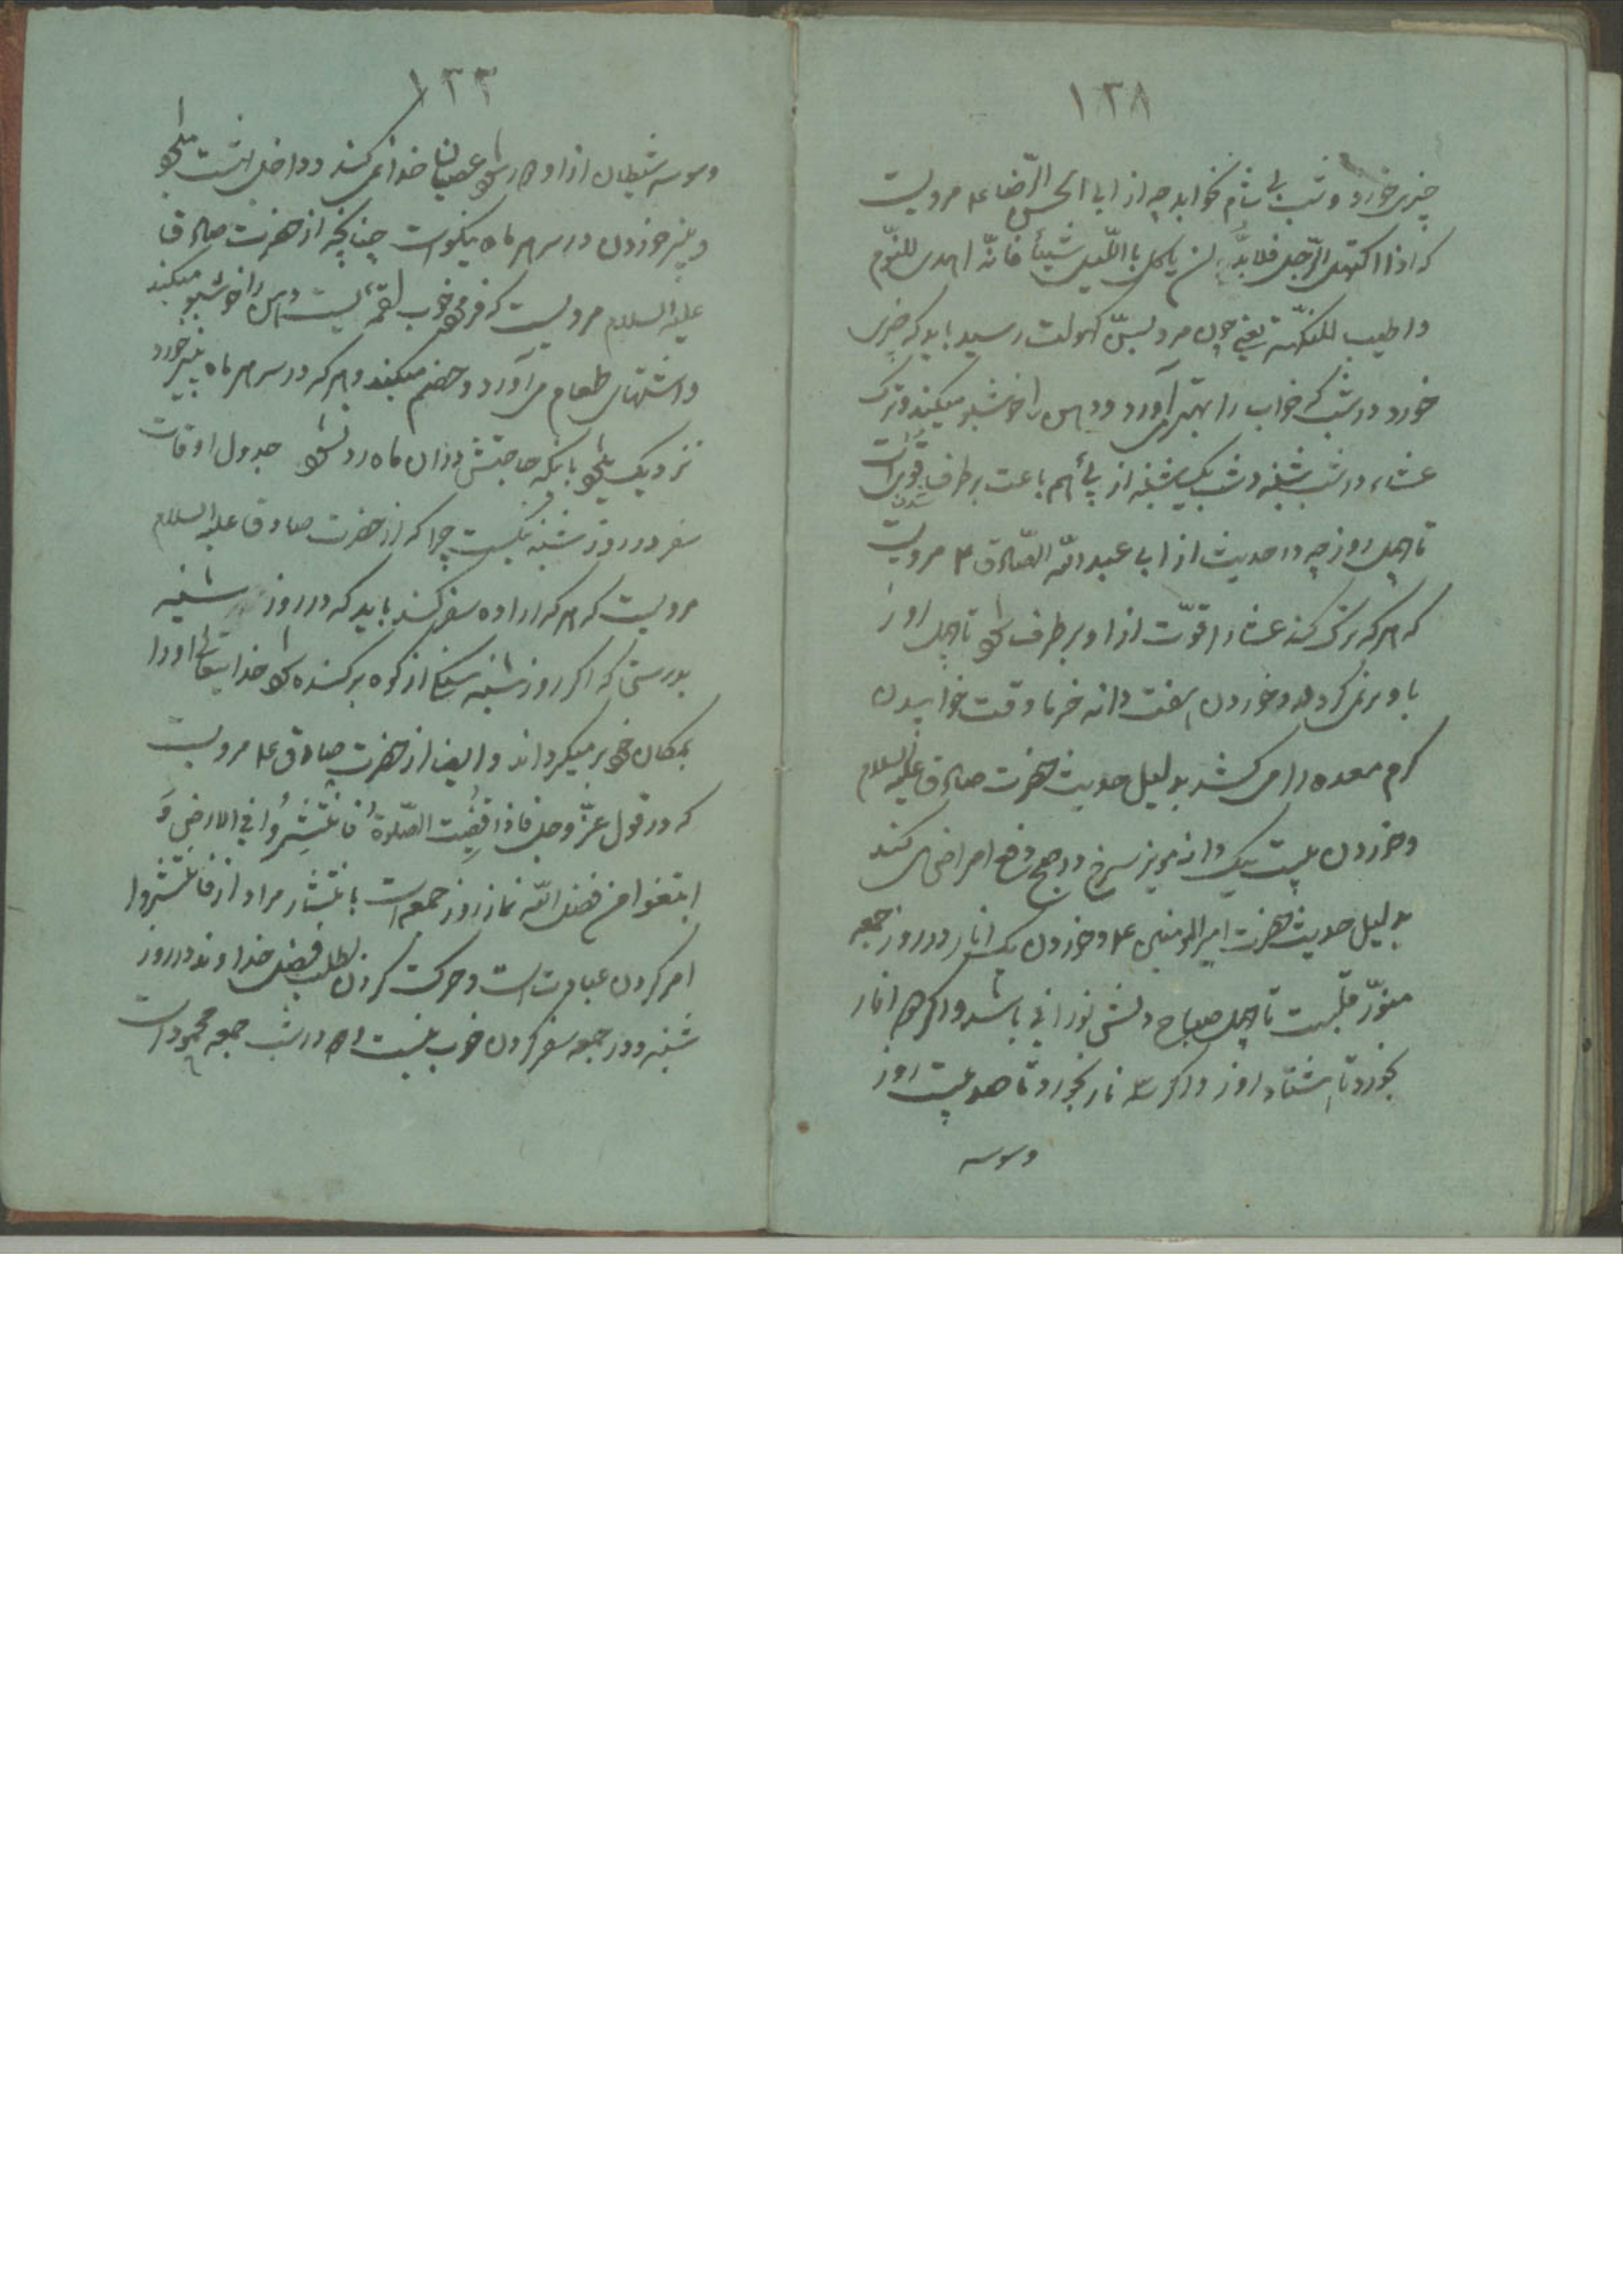 ١٣٨
چیزی خورد و شب بی شام نخوابد چه از ابا الحسن الرّضا ع مرویست
که اذا اکتهل الرّجل فلا بدّ ان یاکل باللّیل شیئاً فانّه اهدی للنّوم
و اطیب للنکهة یعنی چون مرد بسنّ کهولت رسید باید که چیزی
خورد در شب که خواب را بهتر آورد و دهن را خوشبو میکند و ترک
عشاء در شب شنبه و شب یکشنبه از پی هم باعث برطرف شدن قوّتست
تا چهل روز چه در حدیث از ابی عبد الله الصّادق ع مرویست
که هر که ترک کند عشا را قوّت از او برطرف شود تا چهل روز
باو برنمی کردد و خوردن هفت دانه خرما وقت خوابیدن
کرم معده را می کشد بدلیل حدیث حضرت صادق علیه السلام
و خوردن بیست یک دانه مویز سرخ در صبح دفع امراض می کند
بدلیل حدیث حضرت امیر المومنین ع و خوردن یک انار در روز جمعه
منوّر قلبست تا چهل صباح دلش نورانی باشد و اگر دو انار
بخورد تا هشتاد روز و اگر سه نار بخورد تا صد بیست روز
وسوسه
١٣٣
وسوسه شیطان از او دور شود عصیان خدا نمی کند و داخل بهشت میشود
و پنیر خوردن در سر هر ماه نیکوست چنانچه از حضرت صادق
علیه السلام مرویست که فرمود خوب لقمه ایست دهن را خوشبو میکند
و اشتهای طعام می آورد و هضم میکند و هر که در سر هر ماه پنیر خورد
نزدیک میشود بانکه حاجتش در آن ماه رد نشود جدول اوقات
سفر در روز شنبه نیکست چرا که از حضرت صادق علیه السلام
مرویست که هر که اراده سفر کند باید که در روز شنبه
بدرستی که اکر روز شنبه سنکی از کوه برکنده شود خدایتعالی او را
بمکان خود بر میکرداند و ایضا از حضرت صادق ع مرویست
که در قول عزّ و جل فاذا قُضِیَت الصّلوةُ فَانتَشِرُوا فی الارضِ وَ
ابتغوا من فضل الله نماز روز جمعه است با نتشار مراد از فانتشروا
امر کردن عبادت است و حرکت کردن بطلب فضل خداوند در روز
شنبه و در جمعه سفر کردن خوب نیست و در شب جمعه محمود است